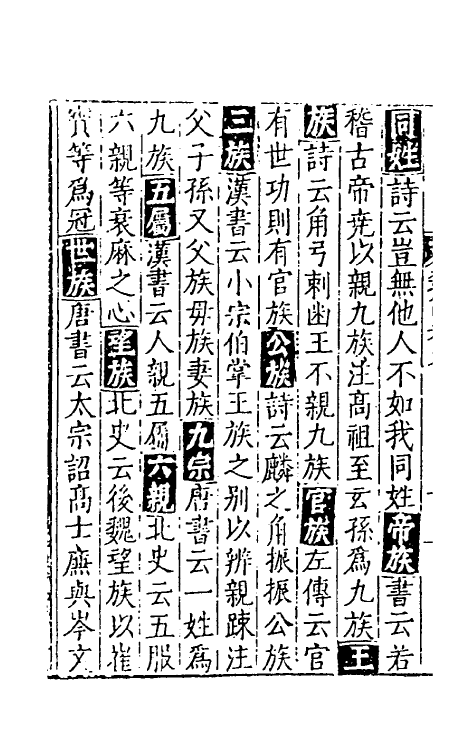 同姓詩云豈無他人不如我同姓帝族書云若
稽古帝堯以親九族注高祖至玄孫爲九族王
族詩云角弓刺幽王不親九族官族左傳云官
有世功則有官族公族詩云麟之角振振公族
三族漢書云小宗伯掌王族之別以辨親疎注
父子孫又父族母族妻族九宗唐書云一姓爲
九族五屬漢書云人親五屬六親北史云五服
六親等衰麻之心望族北史云後魏望族以崔
等爲冠世族唐書云太宗詔高士廉與岑文